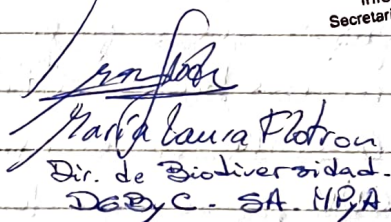 Secretari
María Laura Flotron
Dir. de Biodiversidad.
DGByC - SA. MPyA